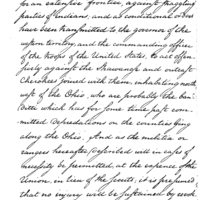 for an extensive frontier, against straggling
parties of Indians, and as conditional orders
have been transmitted to the governor of the
western territory and the commanding officer
of the troops of the United States, to act offen-
sively against the Shawanese and outcast
Cherokees joined with them, inhabiting north
west of the Ohio, who are probably the ban-
ditti which has for some time past com-
mitted depredations on the counties lying
along the Ohio. And as the militia or
rangers hereafter described will in cases of
necessity be permitted at the expense of the
Union, in lieu of the scouts, it is presumed
that no injury will be sustained by such